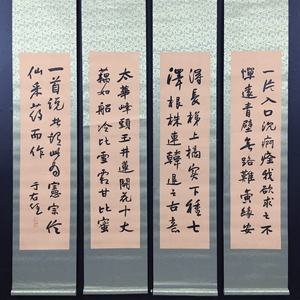 太華峰頭玉井蓮開花十丈
藕如船冷比雪霜甘比蜜
一片入口沈痾痊我欲求之不
憚遠青壁無路難夤緣安
得長梯上摘實下種七
澤根株連韓退之古意
一首說此為憲宗信
仙采藥而作 于右任